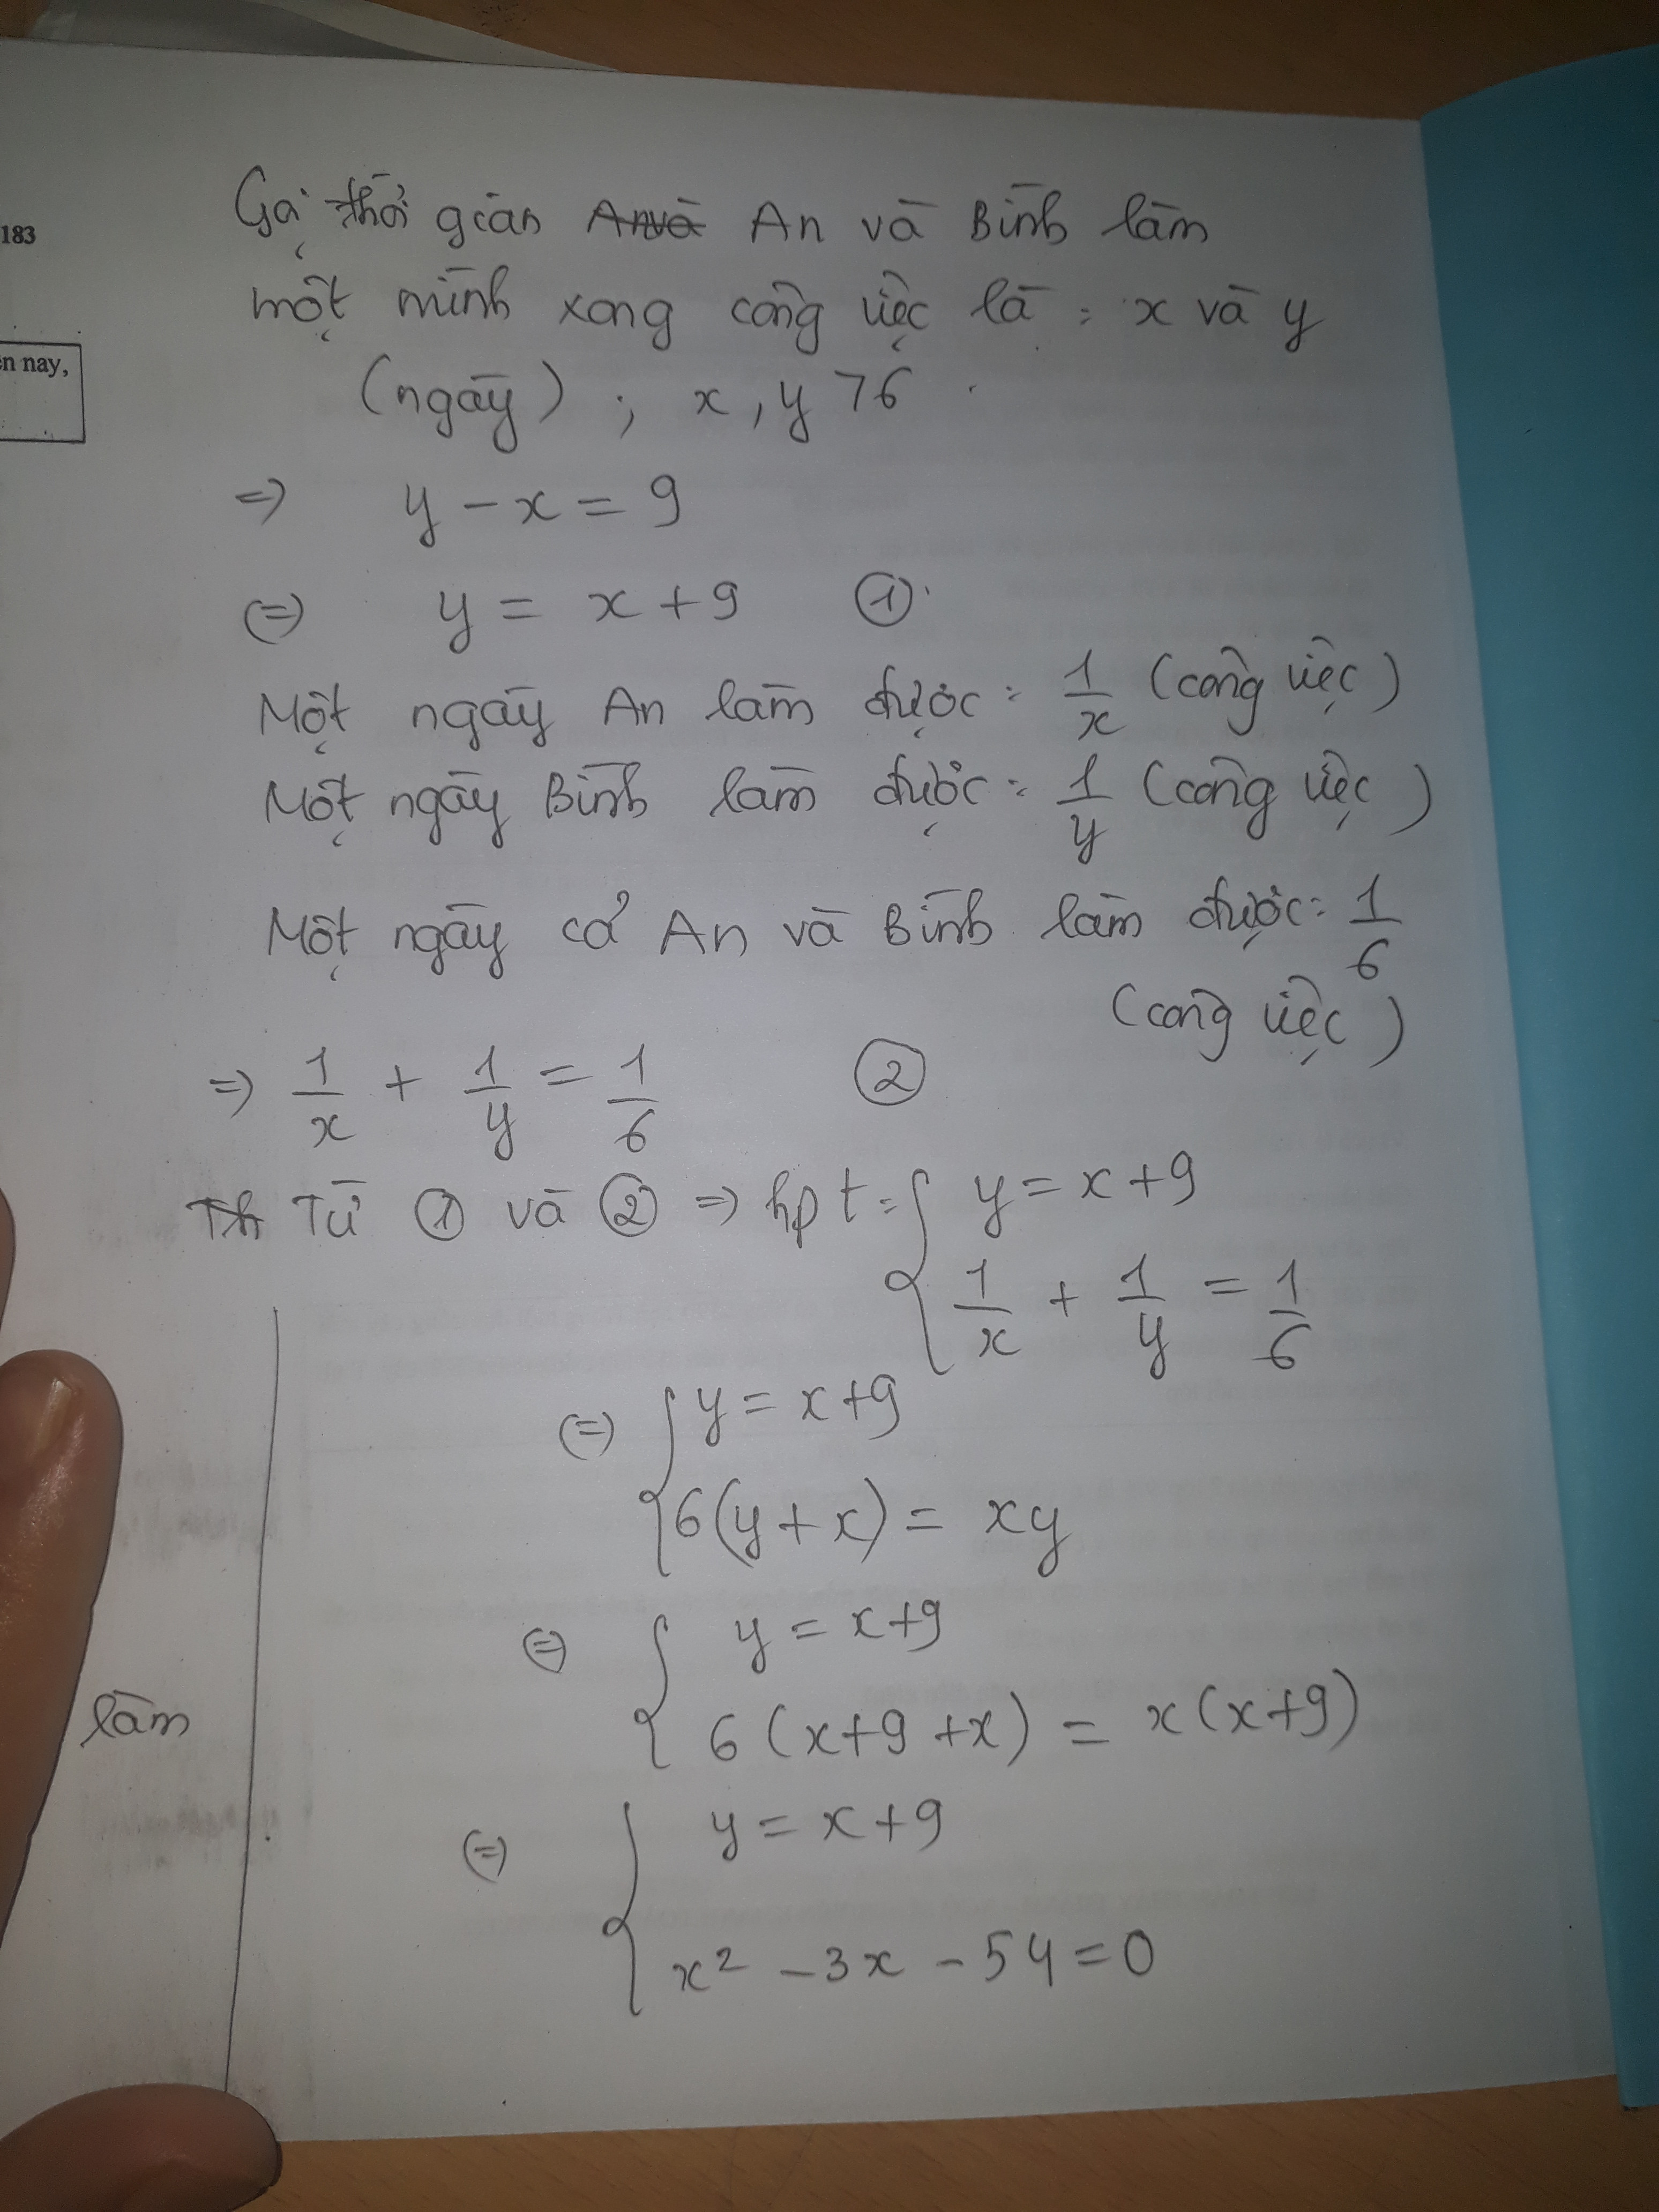 183
ện nay,
Gọi thời gian An và An và Bình làm
một mình xong công việc là : x và y
(ngày) ; x, y > 6
=> y - x = 9
<=> y = x + 9 ①
Một ngày An làm được : 1/x (công việc)
Một ngày Bình làm được : 1/y (công việc)
Một ngày cả An và Bình làm được : 1/6
(công việc)
=> 1/x + 1/y = 1/6 ②
Th Từ ① và ② => hpt : { y = x + 9
1/x + 1/y = 1/6
<=> { y = x + 9
6(y + x) = xy
<=> { y = x + 9
6(x + 9 + x) = x(x + 9)
làm
<=> { y = x + 9
x² - 3x - 54 = 0